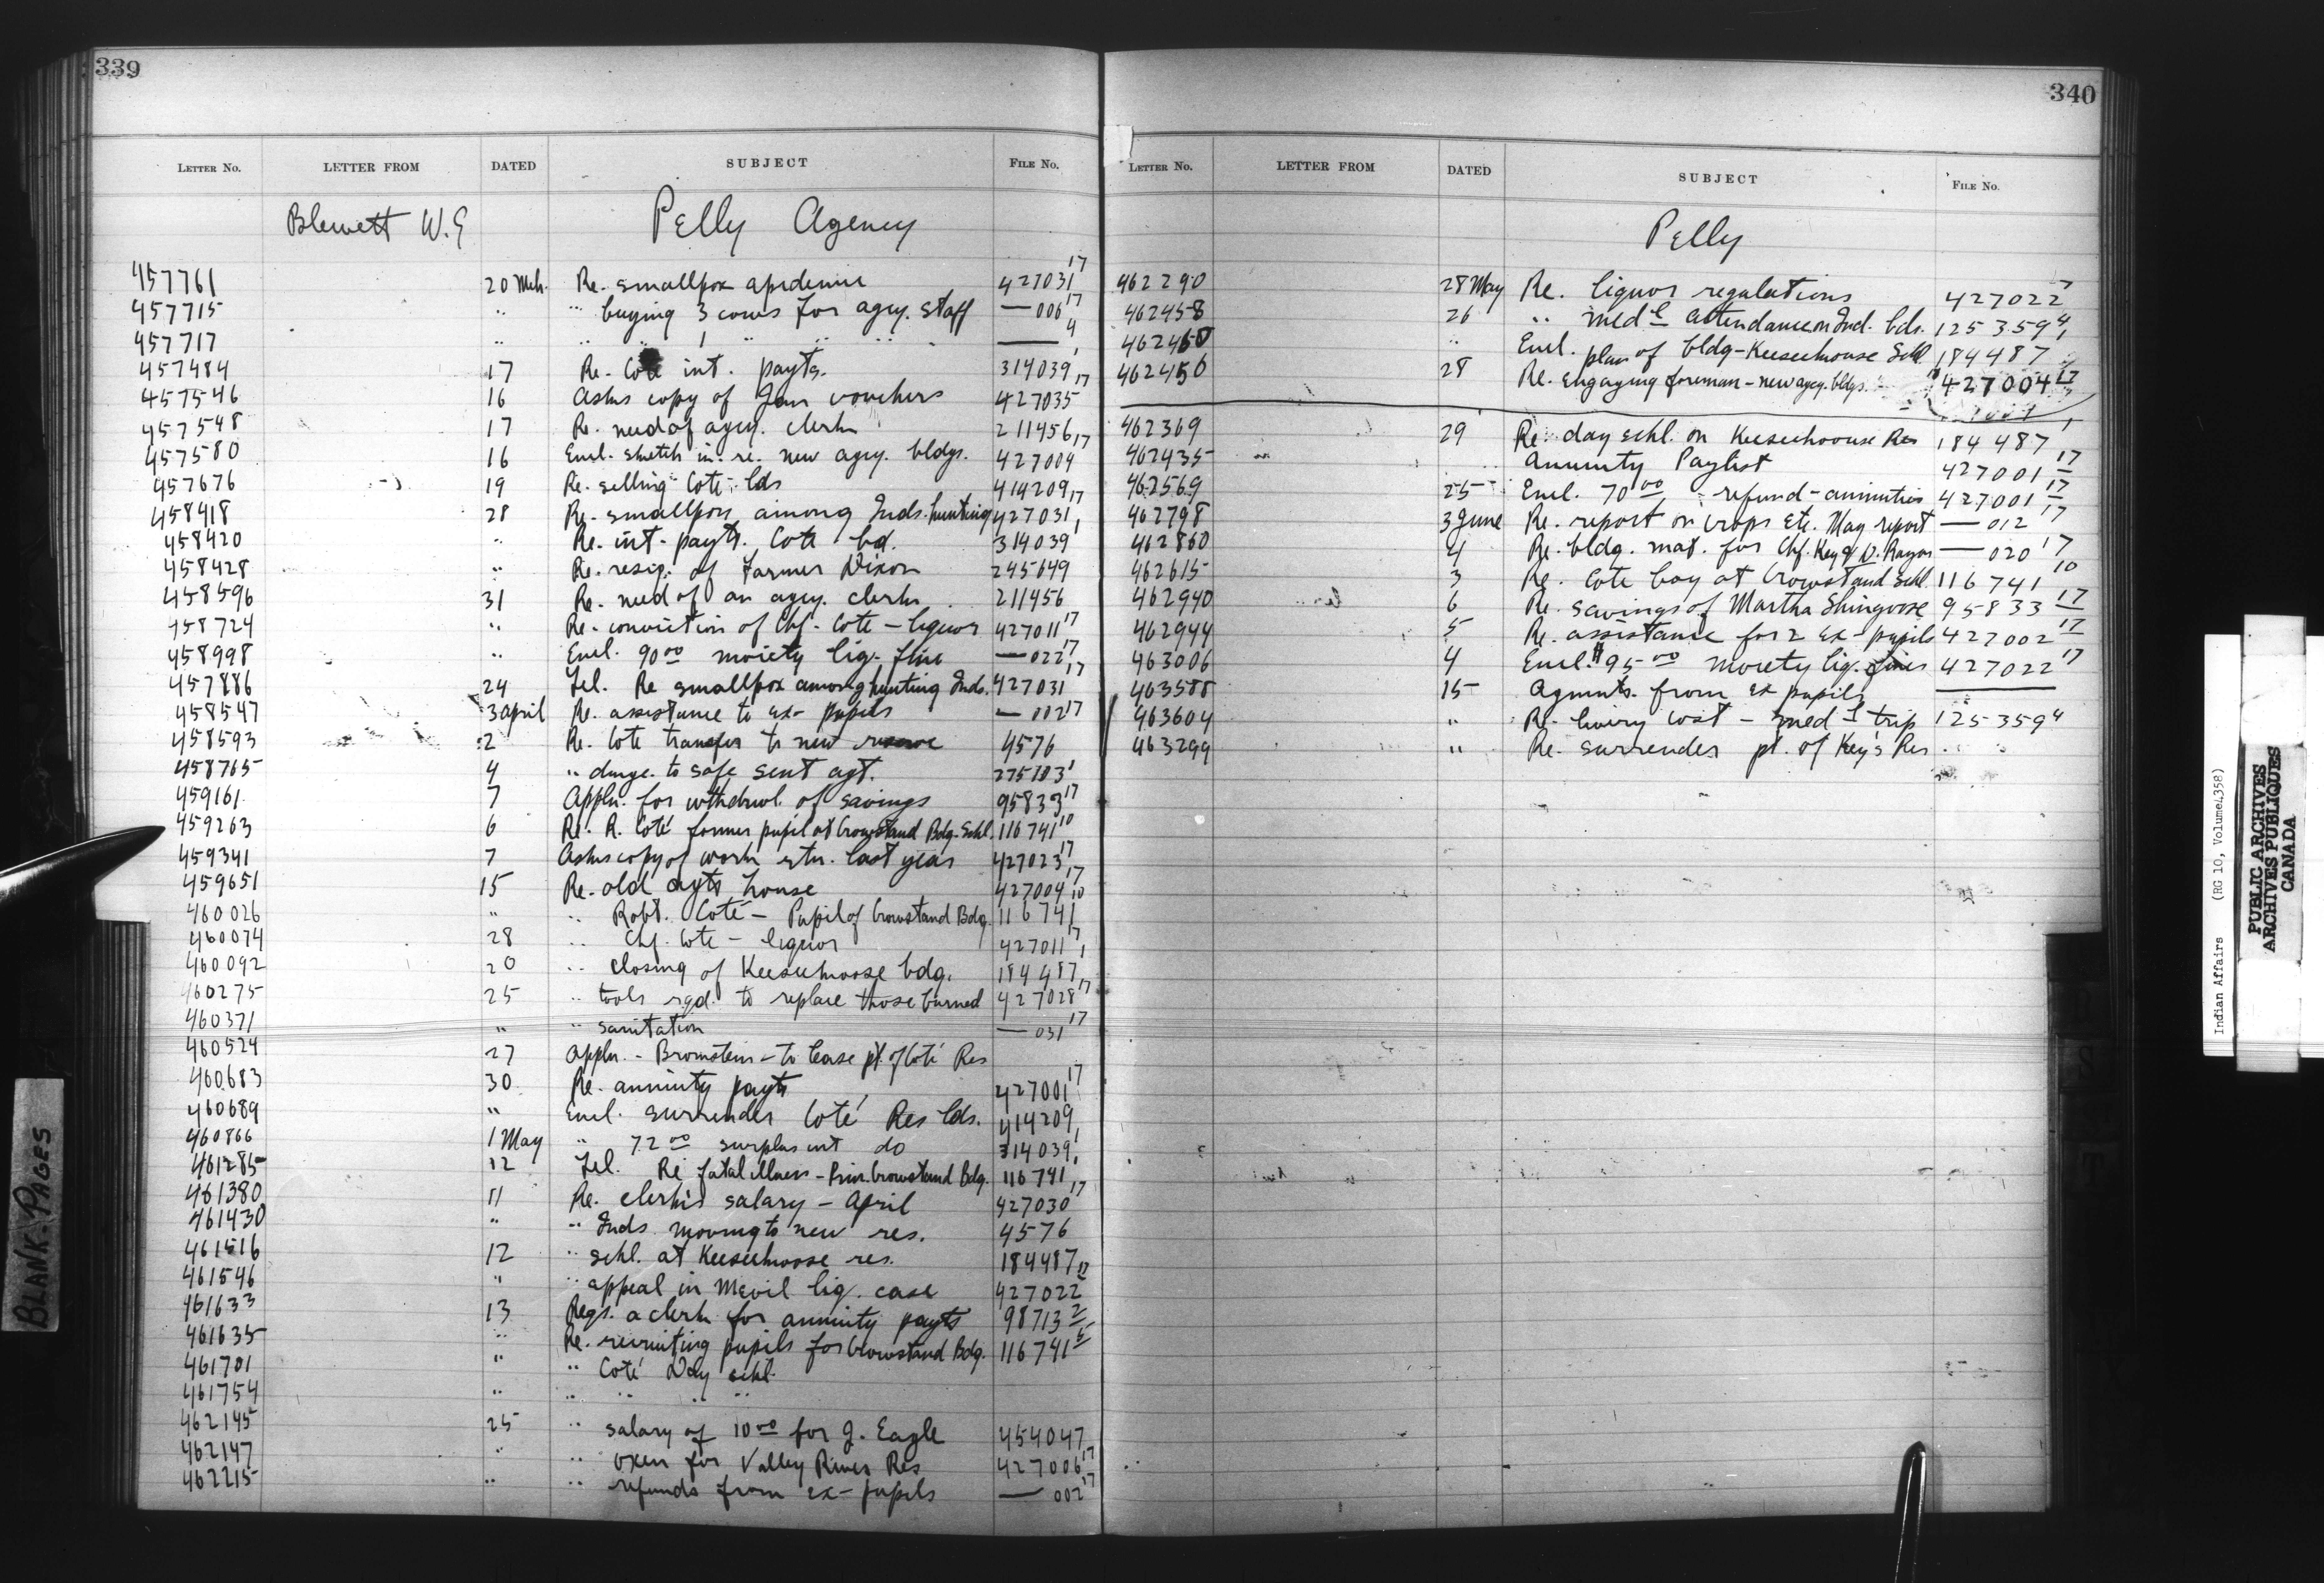 339
LETTER NO. LETTER FROM DATED SUBJECT FILE NO.
Blewett W.E Pelly Agency
457761 20 Mch. Re. smallpox apedemic 427031 17
457715 " " buying 3 cows for agcy. staff — 006 17
457717 " " " 1 " " " — 4
457484 17 Re. Coté int. payts. 314039 1
457546 16 Asks copy of Jan vouchers 427035 17
457548 17 Re. need of agcy. clerk 211456
457580 16 Encl. sketch in re. new agcy. bldgs. 427004 17
457676 19 Re. selling Cote lds 414209
458418 28 Re. smallpox among Inds. hunting 427031 17
458420 " Re. int. payts. Cote bd. 314039 1
458428 " Re. resig. of Farmer Dixon 245649
458596 31 Re. need of an agcy. clerk 211456
458724 " Re. conviction of Chf. Cote – liquor 427011 17
458998 " Encl. 90 00 moiety liq. fine — 022 17
457886 24 Tel. Re smallpox among hunting Inds. 427031 17
458547 3 April Re. assistance to ex- pupils — 002 17
458593 2 Re. Cote transfer to new reserve 4576
458765 4 " damge. to safe sent agt. 275103 1
459161 7 Appln. for wthdrwl. of savings 95833 17
459263 6 Re. R. Coté former pupil at Crowstand Bdg. Schl. 116741 10
459341 7 Asks copy of work rtn. last year 427023 17
459651 15 Re. old agts house 427004 17
460026 " " Robt. Coté – Pupil of Crowstand Bdg. 116741 10
460074 28 " Chf. Cote – liquor 427011 17
460092 20 " closing of Keeseekoose bdg. 184487 1
460275 25 " tools rqd. to replace those burned 427028 17
460371 " " sanitation — 031 17
460524 27 Appln. – Bromstein – to lease pt. of Coté Res
460683 30 Re. annuity payts 427001 17
460689 " Encl. surrender Coté Res lds. 414209
460866 1 May " 72 00 surplus int do 314039 1
461285 12 Tel. Re fatal illness – Prin. Crowstand Bdg. 116741 1
461380 11 Re. clerk's salary – April 427030 17
461430 " " Inds moving to new res. 4576
461516 12 " schl. at Keeseekoose res. 184487
461546 " " appeal in liq. case 427022 17
461633 13 Reqs. a clerk for annuity payts 98713 2
461635 " Re. recruiting pupils for Crowstand Bdg. 116741 5
461701 " " Coté Day schl.
461754 " " " " "
462145 25 " salary of 10 00 for J. Eagle 454047
462147 " " oxen for Valley River Res 427006 17
462215 " " refunds from ex- pupils — 002 17
340
LETTER NO. LETTER FROM DATED SUBJECT FILE NO.
Pelly
462290 28 May Re. liquor regulations 427022 17
462458 26 " medl attendance on Ind. bds. 125359 4
462460 " Encl. plan of bldg – Keeseekoose Schl 184487 1
462450 28 Re. engaging foreman – new agcy. bldgs. 427004 17
462369 29 Re. day schl. on Keeseekoose Res 184487 1
462435 Annuity Paylist 427001 17
462569 25 Encl. 70 00 refund – annuities 427001 17
462798 3 June Re. report on crops etc. May report — 012 17
462860 4 Re. bldg. mat. for Chf. Key & — 020 17
462615 3 Re. Cote boy at Crowstand schl 116741 10
462940 6 Re. savings of Martha Shingoose 95833 17
462944 5 Re. assistance for 2 ex- pupils 427002 17
463006 4 Encl. $95 00 moiety liq. fines 427022 17
463588 15 Agmnts. from ex pupils —
463604 " Re. livery cost – medl trip 125359 4
463299 " Re. surrender pt. of Key's Res
BLANK. PAGES
Indian Affairs (RG 10, Volume 4358)
PUBLIC ARCHIVES
ARCHIVES PUBLIQUES
CANADA